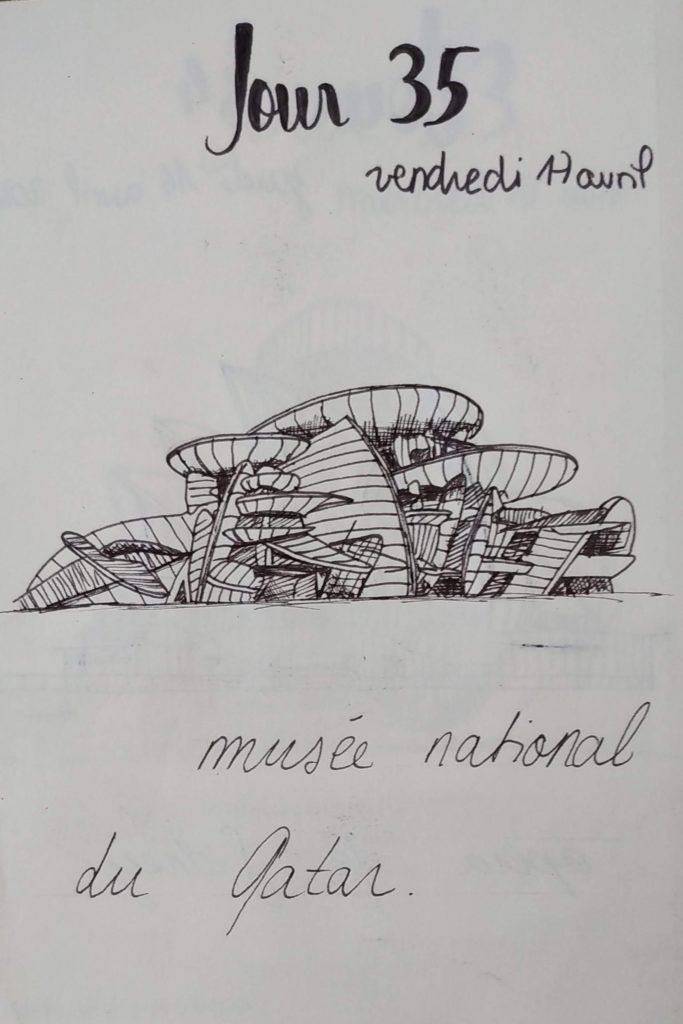 Jour 35
vendredi 17 avril
musée national
du Qatar.